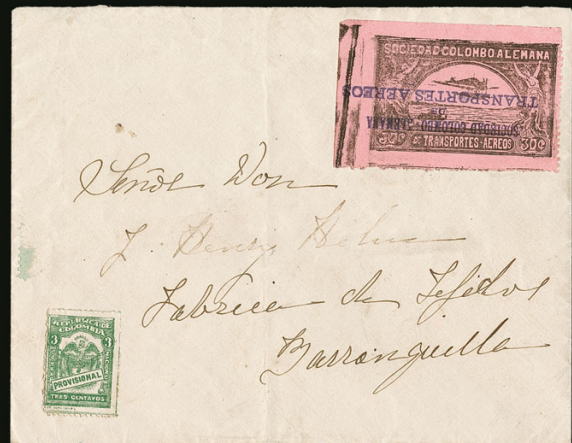 SOCIEDAD COLOMBO ALEMANA
SOCIEDAD COLOMBO ALEMANA
DE
TRANSPORTES AEREOS
30¢ DE TRANSPORTES-AEREOS 30¢
Señor Don
J. Henry
Fabrica de Tejidos
Barranquilla
REPUBLICA DE
COLOMBIA
3 3
PROVISIONAL
TRES CENTAVOS